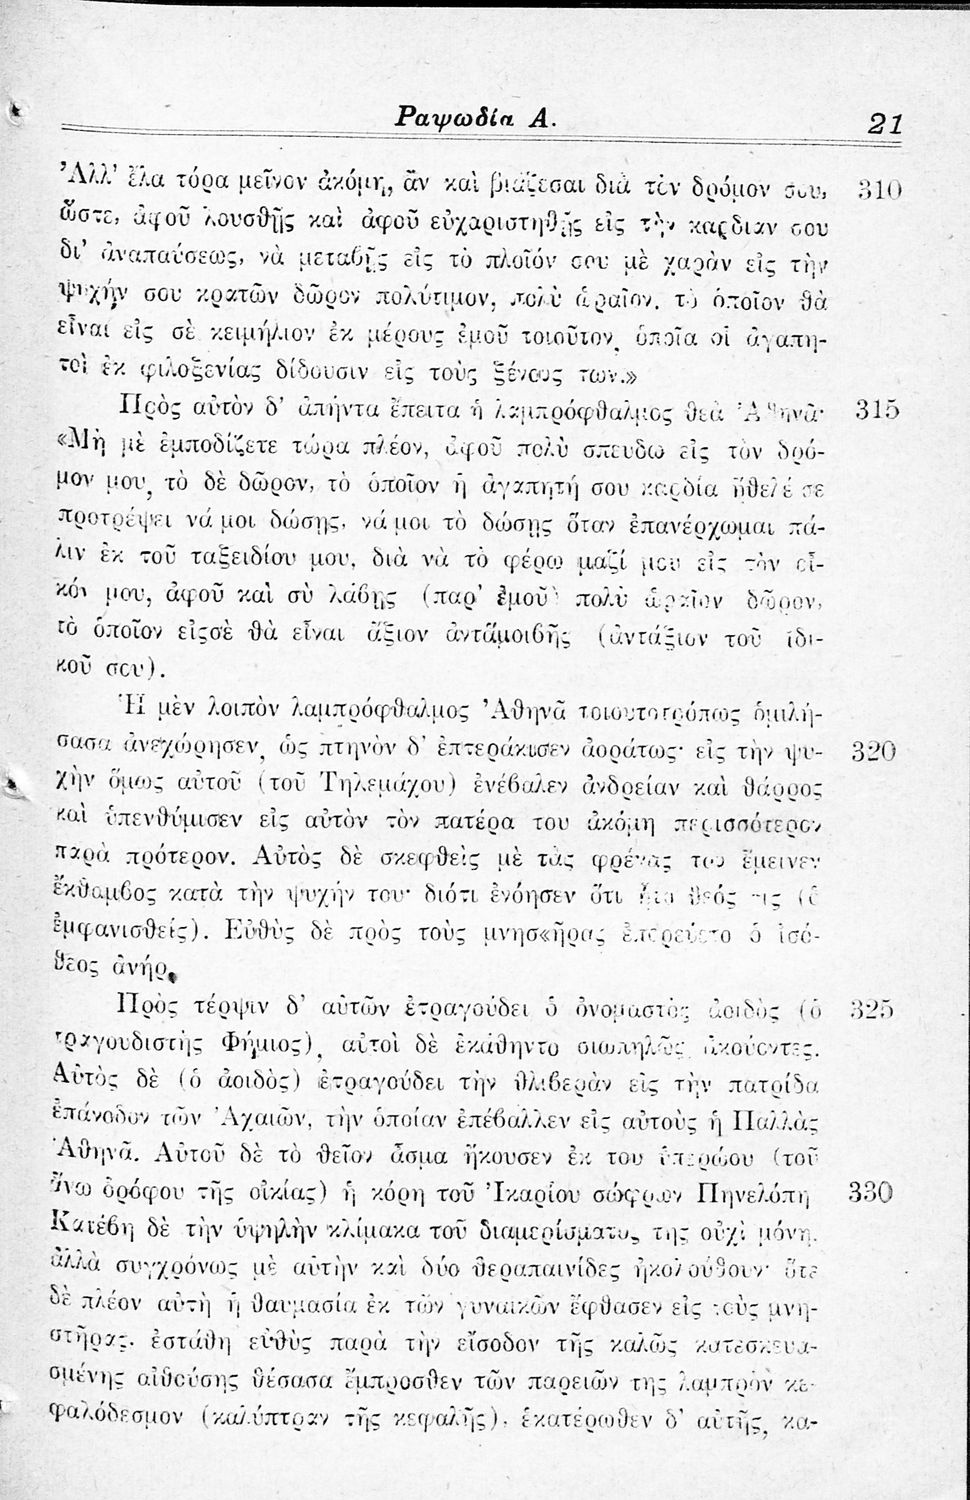 Ραψωδία Α.
21
Ἀλλ' ἔλα τόρα μεῖνον ἀκόμη, ἄν καὶ βιάζεσαι διὰ τὸν δρόμον σου, 310
ὥστε, ἀφοῦ λουσθῇς καὶ ἀφοῦ εὐχαριστηθῇς εἰς τὴν καρδίαν σου
δι' ἀναπαύσεως, νὰ μεταβῇς εἰς τὸ πλοῖόν σου μὲ χαρὰν εἰς τὴν
ψυχήν σου κρατῶν δῶρον πολύτιμον, πολὺ ὡραῖον, τὸ ὁποῖον θὰ
εἶναι εἰς σὲ κειμήλιον ἐκ μέρους ἐμοῦ τοιοῦτον, ὁποῖα οἱ ἀγαπη-
τοὶ ἐκ φιλοξενίας δίδουσιν εἰς τοὺς ξένους των.»
Πρὸς αὐτὸν δ' ἀπήντα ἔπειτα ἡ λαμπρόφθαλμος θεὰ Ἀθηνᾶ· 315
«Μὴ μὲ ἐμποδίζετε τώρα πλέον, ἀφοῦ πολὺ σπεύδω εἰς τὸν δρό-
μον μου, τὸ δὲ δῶρον, τὸ ὁποῖον ἡ ἀγαπητή σου καρδία ἤθελέ σε
προτρέψει νά μοι δώσῃς, νά μοι τὸ δώσῃς ὅταν ἐπανέρχωμαι πά-
λιν ἐκ τοῦ ταξειδίου μου, διὰ νὰ τὸ φέρω μαζί μου εἰς τὸν οἶ-
κόν μου, ἀφοῦ καὶ σὺ λάβῃς (παρ' ἐμοῦ) πολὺ ὡραῖον δῶρον,
τὸ ὁποῖον εἰςσὲ θὰ εἶναι ἄξιον ἀνταμοιβῆς (ἀντάξιον τοῦ ἰδι-
κοῦ σου).
Ἡ μὲν λοιπὸν λαμπρόφθαλμος Ἀθηνᾶ τοιουτοτρόπως ὁμιλή-
σασα ἀνεχώρησεν, ὡς πτηνὸν δ' ἐπτεράκισεν ἀοράτως· εἰς τὴν ψυ- 320
χὴν ὅμως αὐτοῦ (τοῦ Τηλεμάχου) ἐνέβαλεν ἀνδρείαν καὶ θάρρος
καὶ ὑπενθύμισεν εἰς αὐτὸν τὸν πατέρα του ἀκόμη περισσότερον
παρὰ πρότερον. Αὐτὸς δὲ σκεφθεὶς μὲ τὰς φρένας του ἔμεινεν
ἔκθαμβος κατὰ τὴν ψυχήν του· διότι ἐνόησεν ὅτι ἦτο θεός τις (ὁ
ἐμφανισθείς). Εὐθὺς δὲ πρὸς τοὺς μνηστῆρας ἐπορεύετο ὁ ἰσό-
θεος ἀνήρ.
Πρὸς τέρψιν δ' αὐτῶν ἐτραγούδει ὁ ὀνομαστὸς ἀοιδὸς (ὁ 325
τραγουδιστὴς Φήμιος), αὐτοὶ δὲ ἐκάθηντο σιωπηλῶς ἀκούοντες.
Αὐτὸς δὲ (ὁ ἀοιδὸς) ἐτραγούδει τὴν θλιβερὰν εἰς τὴν πατρίδα
ἐπάνοδον τῶν Ἀχαιῶν, τὴν ὁποίαν ἐπέβαλλεν εἰς αὐτοὺς ἡ Παλλὰς
Ἀθηνᾶ. Αὐτοῦ δὲ τὸ θεῖον ᾆσμα ἤκουσεν ἐκ του ὑπερῴου (τοῦ
ἄνω ὀρόφου τῆς οἰκίας) ἡ κόρη τοῦ Ἰκαρίου σώφρων Πηνελόπη 330
Κατέβη δὲ τὴν ὑψηλὴν κλίμακα τοῦ διαμερίσματος της οὐχὶ μόνη,
ἀλλὰ συγχρόνως μὲ αὐτὴν καὶ δύο θεραπαινίδες ἠκολούθουν· ὅτε
δὲ πλέον αὐτὴ ἡ θαυμασία ἐκ τῶν γυναικῶν ἔφθασεν εἰς τοὺς μνη-
στῆρας, ἐστάθη εὐθὺς παρὰ τὴν εἴσοδον τῆς καλῶς κατεσκευα-
σμένης αἰθούσης θέσασα ἔμπροσθεν τῶν παρειῶν της λαμπρὸν κε-
φαλόδεσμον (καλύπτραν τῆς κεφαλῆς), ἑκατέρωθεν δ' αὐτῆς, κα-